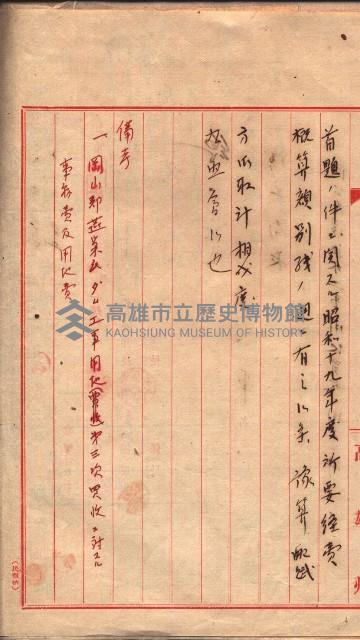 首題ノ件ニ関スル昭和十九年度所要経費
概算額別紙ノ通ニ有之候条豫算配賦
方御取計相成度
備考
一 岡山郡燕巣ダム工事用地第三次買收ニ対スル
事務費及用地費
高雄州
高雄市立歷史博物館
KAOHSIUNG MUSEUM OF HISTORY